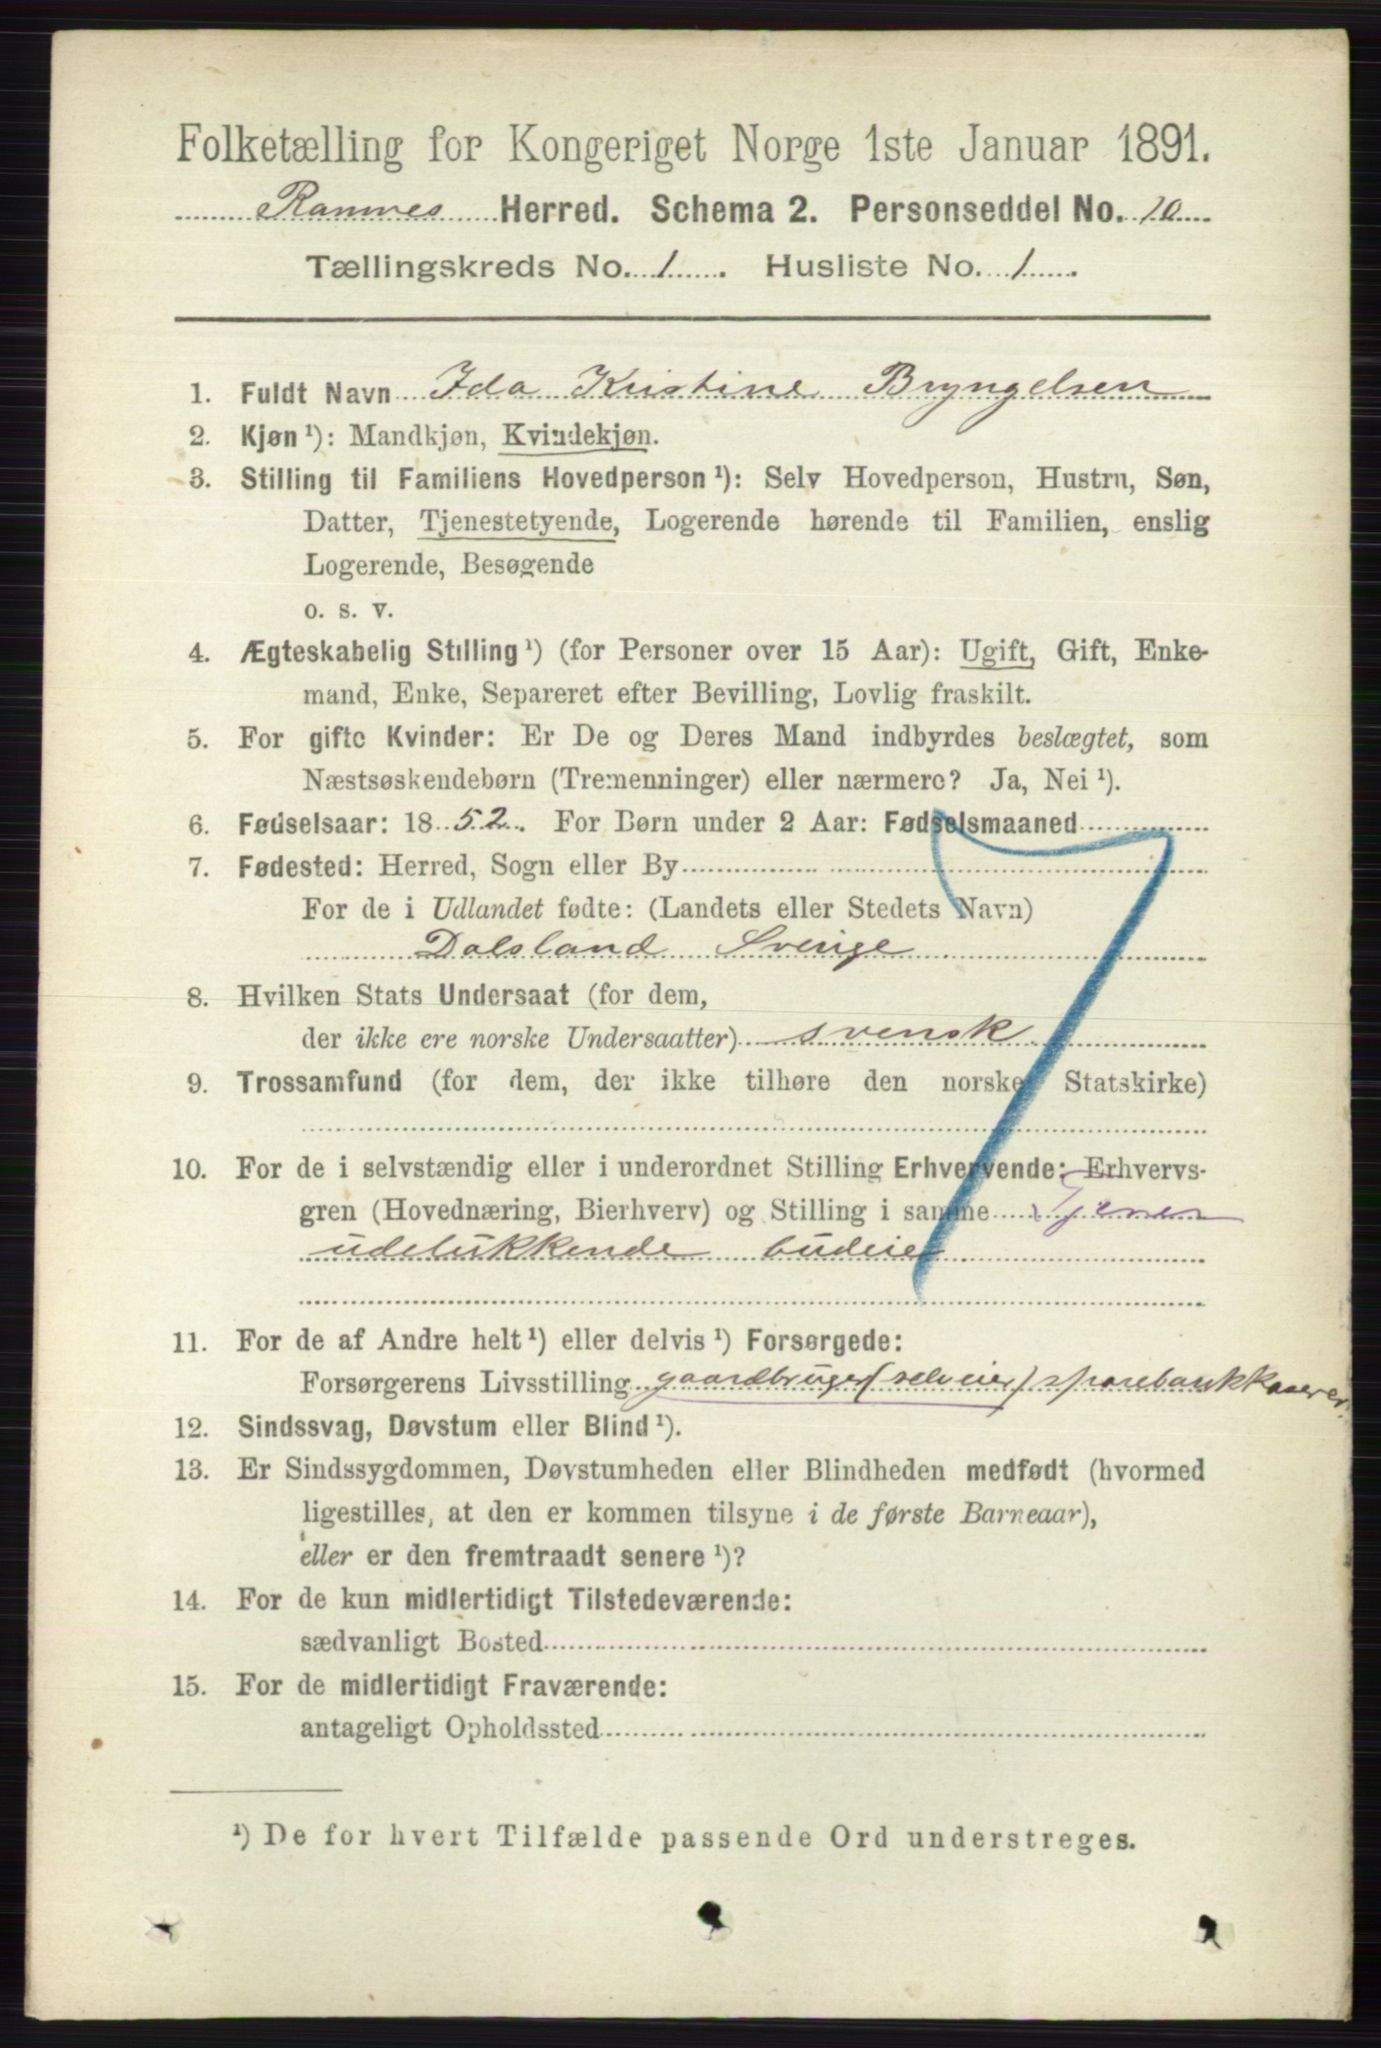 Folketælling for Kongeriget Norge 1ste Januar 1891.
Ramnes Herred. Schema 2. Personseddel No. 10
Tællingskreds No. 1. Husliste No. 1.
1. Fuldt Navn Ida Kristine Bryngelsen
2. Kjøn ¹): Mandkjøn, Kvindekjøn.
3. Stilling til Familiens Hovedperson ¹): Selv Hovedperson, Hustru, Søn,
Datter, Tjenestetyende, Logerende hørende til Familien, enslig
Logerende, Besøgende
o. s. v.
4. Ægteskabelig Stilling ¹) (for Personer over 15 Aar): Ugift, Gift, Enke-
mand, Enke, Separeret efter Bevilling, Lovlig fraskilt.
5. For gifte Kvinder: Er De og Deres Mand indbyrdes beslægtet, som
Næstsøskendebørn (Tremenninger) eller nærmere? Ja, Nei ¹).
6. Fødselsaar: 1852. For Børn under 2 Aar: Fødselsmaaned
7. Fødested: Herred, Sogn eller By
For de i Udlandet fødte: (Landets eller Stedets Navn)
Dalsland Sverige
8. Hvilken Stats Undersaat (for dem,
der ikke ere norske Undersaatter) svensk
9. Trossamfund (for dem, der ikke tilhøre den norske Statskirke)
10. For de i selvstændig eller i underordnet Stilling Erhvervende: Erhvervs-
gren (Hovednæring, Bierhverv) og Stilling i samme Tjener
udelukkende budeie
11. For de af Andre helt ¹) eller delvis ¹) Forsørgede:
Forsørgerens Livsstilling gaardbruger (selveier) sparebankkaserer.
12. Sindssvag, Døvstum eller Blind ¹).
13. Er Sindssygdommen, Døvstumheden eller Blindheden medfødt (hvormed
ligestilles, at den er kommen tilsyne i de første Barneaar),
eller er den fremtraadt senere ¹)?
14. For de kun midlertidigt Tilstedeværende:
sædvanligt Bosted
15. For de midlertidigt Fraværende:
antageligt Opholdssted
¹) De for hvert Tilfælde passende Ord understreges.